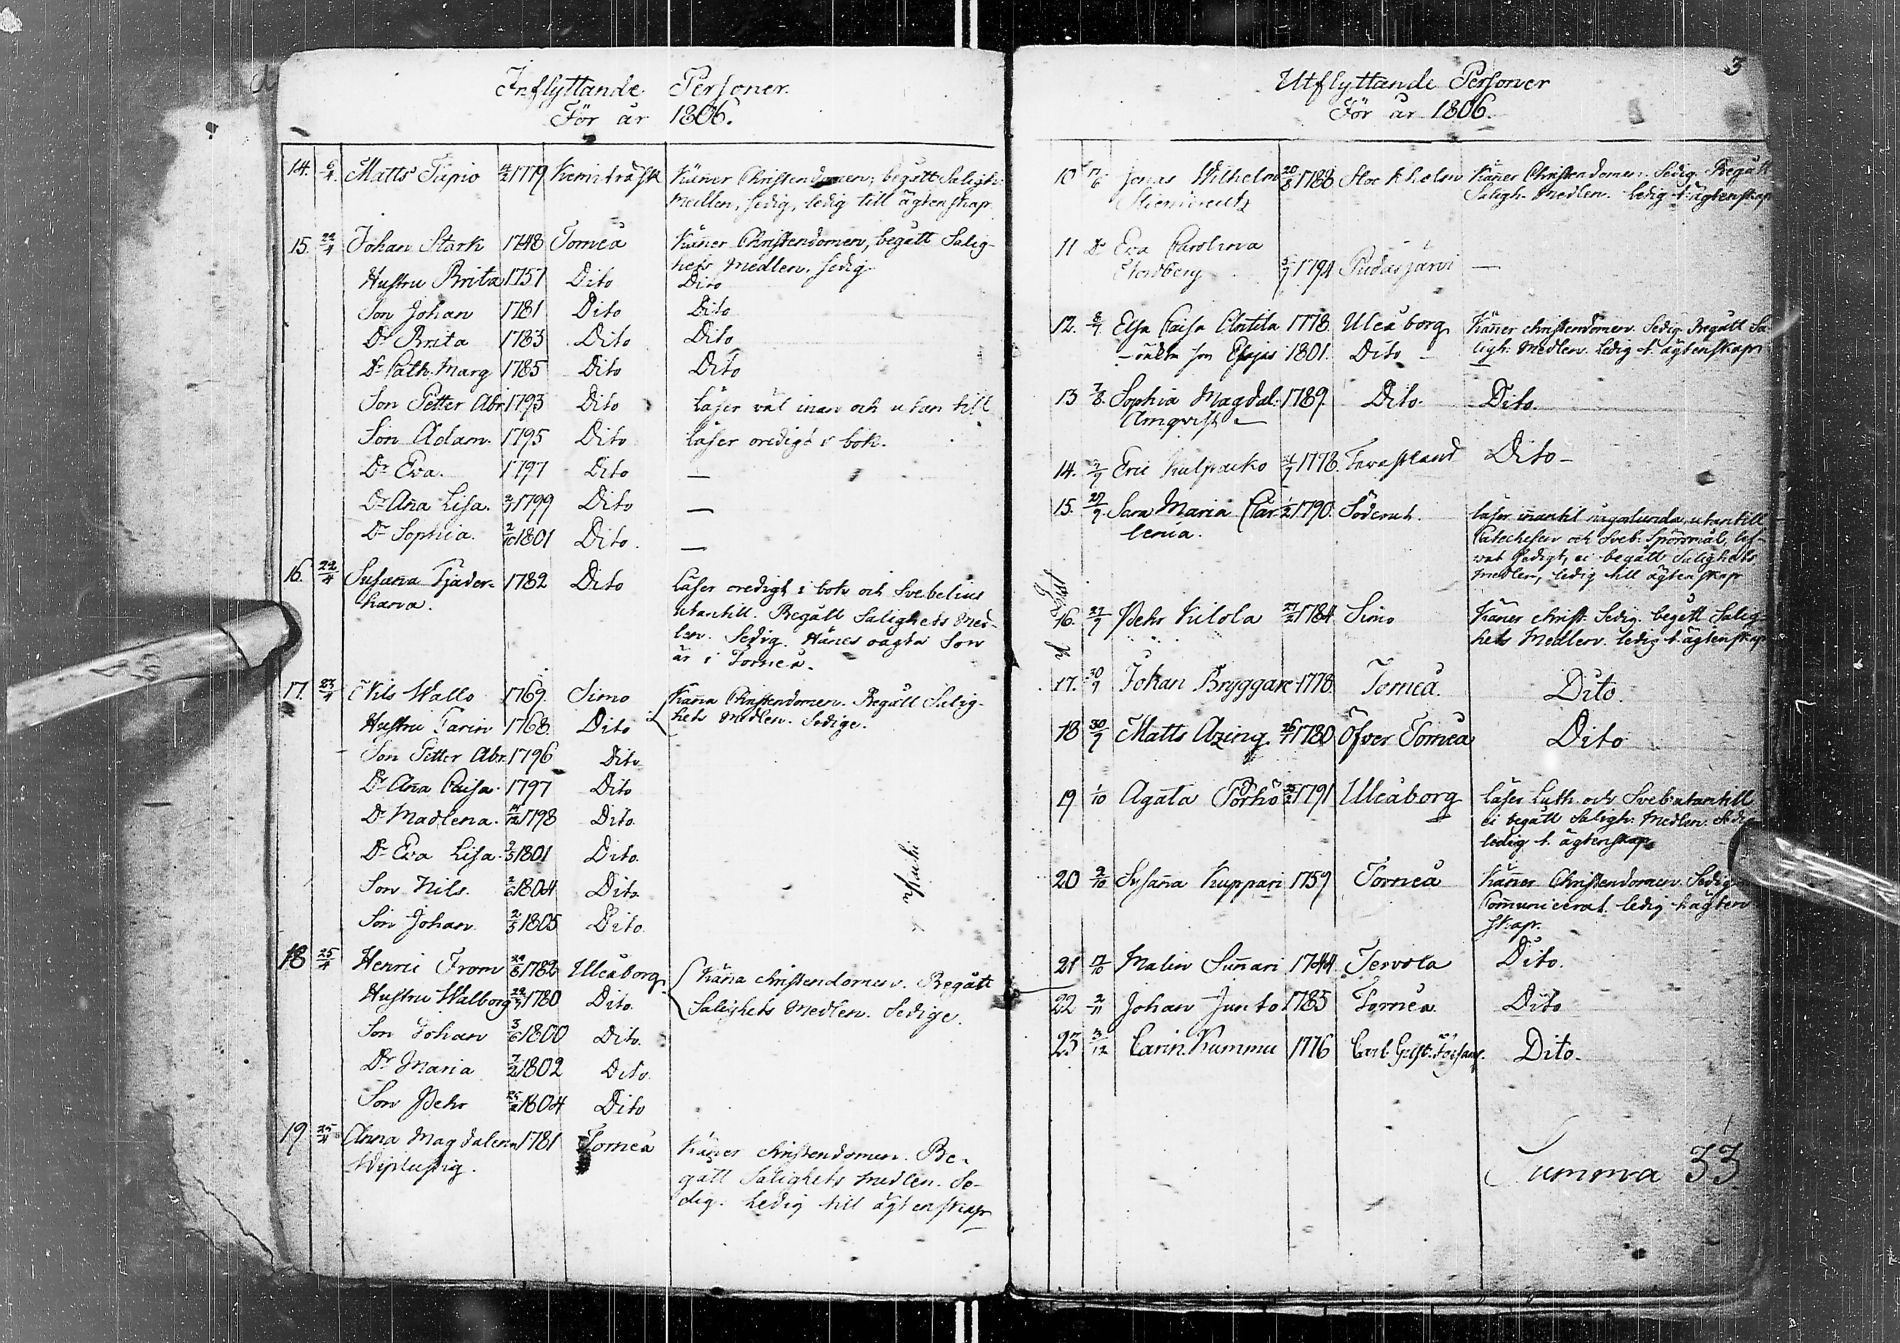 Inflyttande Personer
För år 1806.
14. 6/4 Matts Tupio 1779 Kemi träsk Känner Christendomen, begått Saligh.
Medlen, sedig, ledig till ägtenskap
15. 22/4 Johan Stark 1748 Torneå Känner Christendomen, begått Salig-
hets Medlen. sedig
Hustru Brita 1751 Dito Dito
Son Johan 1781 Dito Dito
Dr Brita 1783 Dito Dito
Dr Cath. Marg 1785 Dito Dito
Son Petter Abr 1793 Dito läser väl innan och utan till
Son Adam. 1795 Dito läser oredigt i bok.
Dr Eva. 1797 Dito —
Dr Aña Lisa. 1799 Dito —
Dr Sophia. 2/10 1801 Dito. —
16. 22/4 Susana Tjader- 1782 Dito läser oredigt i bok och Svebelius
hana. utantill. Begått Salighets Med-
len. Sedig. Hänes oägta Son
är i Torneå.
17. 23/4 Nils Wallo 1769. Simo Käña Christendomen. Begått Salig-
Hustru Carin 1768 Dito hets Medlen. Sedige.
Son Petter Abr. 1796 Dito
Dr Aña Caisa. 1797 Dito
Dr Madlena. 1798 Dito
Dr Eva Lisa. 1801 Dito
Son Nils. 1804 Dito
Son Johan 1805 Dito
18 25/4 Henric From 1782 Uleåborg Käña christendomen. Begått
Hustru Walborg 1780 Dito. Salighets Medlen. Sedige.
Son Johan 3/6 1800 Dito.
Dr Maria 1802 Dito
Son Pehr 1804 Dito
19 25/4 Anna Magdalena 1781 Torneå Käñer christendomen. Be-
gått Salighets Medlen. Se-
dig. Ledig till ägtenskap
3
Utflyttande Personer
För år 1806.
10 17/6 Jonas Wilhelm 20/8 1788 Stockholm Käñer Christendomen. Sedig. Begått
Saligh. Medlen. ledig t. ägtenskap
11 Do Eva Carolina
1794 Pudasjärvi —
12. 8/7 Elsa Caisa Antila 1778. Uleåborg Käñer christendomen. Sedig. Begått Sa-
— oäkta son Esajas 1801. Dito — ligh. Medlen. Ledig t. ägtenskap
13 7/8. Sophia Magdal. 1789. Dito Dito.
Almqvist —
14. 2/9 Eric Kulpacko 1778. Tavastland Dito —
15. 27/9 Sara Maria Clar 1790. Söderut. läser iñantil någorlunda, utantill
lenia. Catechesen och Sveb. Spörsmål, lef-
vat sedigt, ei begått Salighets
medlen, ledig till ägtenskap
16. 27/9 Pehr Kilola 1784 Simo Käñer christ. Sedig. begått Salig-
hets Medlen. ledig t. ägtenskap
17. 30/9 Johan Bryggare 1778 Torneå. Dito.
18 30/9 Matts Azing 1780 Öfver Torneå Dito
19 1/10 Agata Pörhö 1791 Uleåborg läser Luth. och Sveb. utantill
ei begått Saligh. Medlen. Sedig
ledig t. ägtenskap
20 2/10 Susaña Kuppari 1759 Torneå Käñer Christendomen. Sedig
Com̃unicerat. ledig t. ägten
skap.
21 12/10 Malin Suñari 1744 Tervola Dito.
22 2/11 Johan Junto 1785 Torneå Dito
23 3/12 Carin Kummu 1776 Dito.
Summa 33